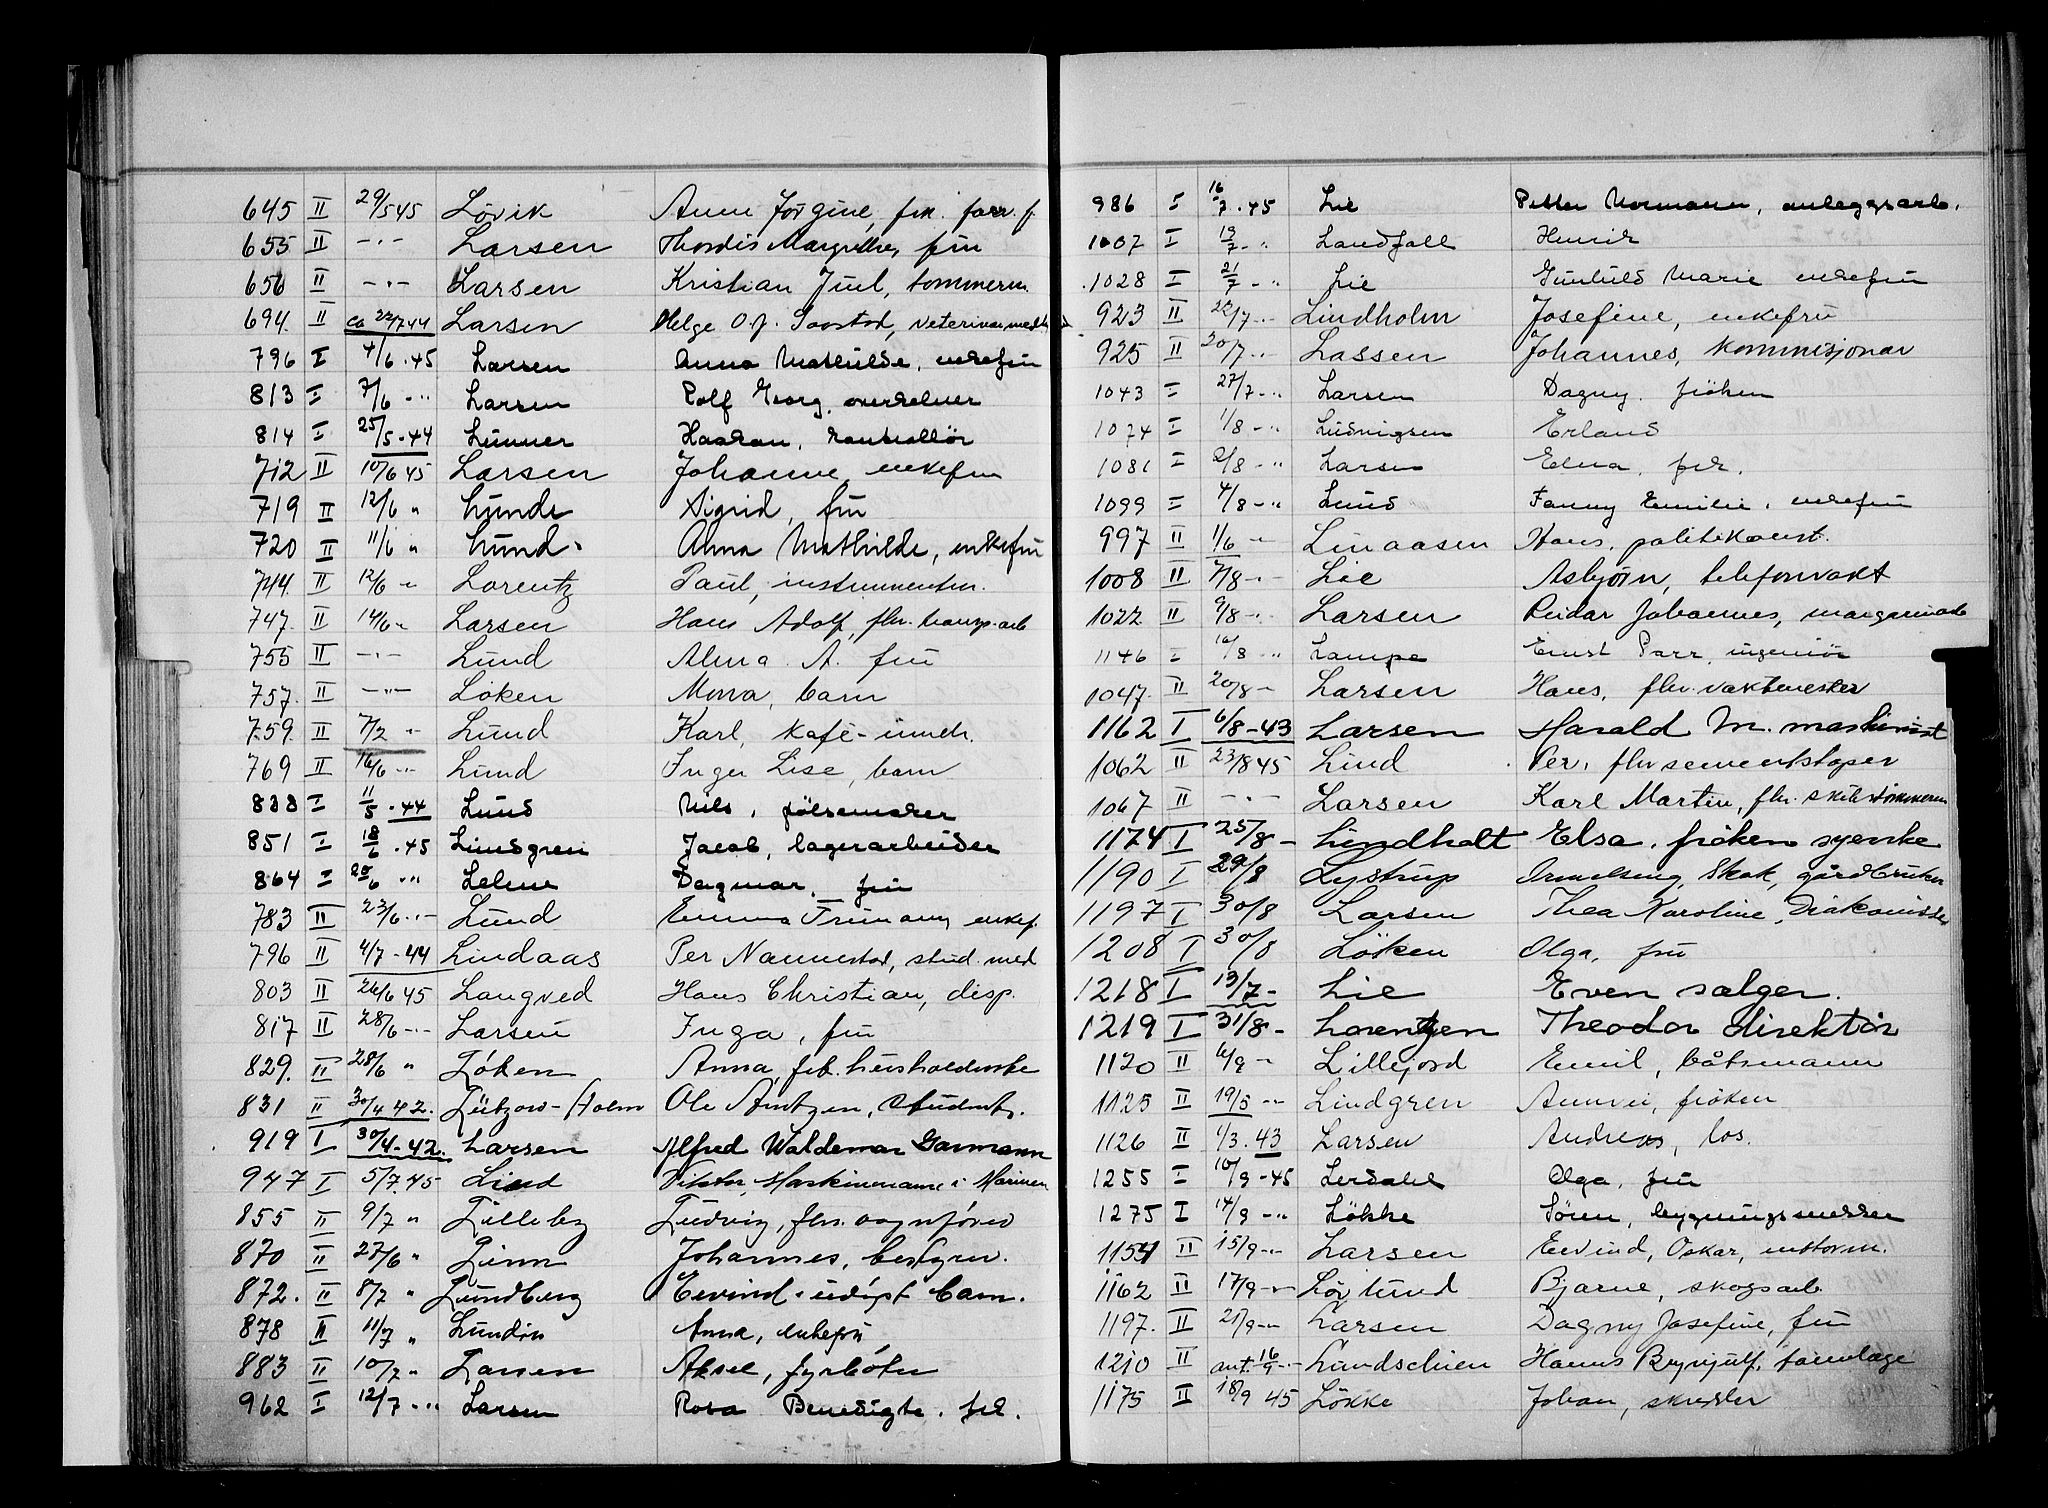 645 II 29/5 45 Lövik Anne Jörgine, frk. forr. f.
655 II -"- Larsen Thordis Margrethe, fru
656 II -"- Larsen Kristian Juul, tømmerm.
694. II ca 22/7 44 Larsen Helge O. J.
796 I 4/6 . 45 Larsen Anna Mathilde, enkefru
813 I 7/6 - " Larsen Rolf Georg, overkelner
814 I 25/5 - 44 Lunner Haakon, kontrollör
712 II 10/6 45 Larsen Johanne, enkefru
719 II 12/6 " Lunde Sigrid, fru
720 II 11/6 " Lund Anna Mathilde, enkefru
744. II 12/6 " Lorentz Paul, instrumentm.
747. II 14/6 " Larsen Hans Adolf, fhv. transp. arb
755 II -"- Lund Alma A. fru
757. II -"- Löken Mona, barn
759. II 7/2 " Lund Karl, kafé-inneh.
769 II 16/6 -" Lund Inger Lise, barn
838 I 11/5 . 44 Lund Nils, pölsemaker
851 I 18/6 . 45 Lindgren Jacob, lagerarbeider
864 I 20/6 " Lelme Dagmar, fru
783 II 23/6 -"- Lund Emma enkef.
796 II 4/7 - 44 Lindaas Per Nannestad, stud. med
803 II 26/6 45 Langved Hans Christian, disp.
817 II 28/6 -"- Larsen Inga, fru
829. II 28/6 " Löken Anna, frk. husholderske
831 II 30/4 42. Lützow-Holm Ole Arntzen, student.
919 I 30/4-42. Larsen Alfred Waldemar Garmann
947 I 5/7.45 Lind Viktor, Maskinmann i Marinen
855 II 9/7 " Lilleby Ludvig, fhv. vognfører
870 II 27/6 " Linn Johannes, bestyrer.
872. II 8/7 " Lundberg Eivind, udöpt barn.
878 II 11/7 " Lundin Anna, enkefru
883 II 10/7 " Larsen Aksel, fyrböter
962 I 12/7 -" Larsen Rosa Benedigte, frk.
986 I 16/7 . 45 Lie Petter Normann, anleggsarb.
1007 I 19/7 - " Landfall Henrik
1028 I 21/7 - " Lie Gunhild Marie enkefru
923 II 22/7 -" Lindholm Josefine, enkefru
925 II 20/7 -" Lassen Johannes, kommisjonær
1043 I 27/7 - " Larsen Dagny, fröken
1074 I 1/8 - " Ludvigsen Erland
1081 I 2/8 - " Larsen Edna, frk.
1099 I 4/8 - " Lund Fanny Emilie, enkefru
997 II 1/6 " Linaasen Hans, politikonst.
1008 II 7/8 -"- Lie Asbjörn, telefonvakt
1022 II 9/8 -"- Larsen Reidar Johannes, margarinarb
1146 I 16/8 - " Lampe Ernst Parr, ingeniör
1047. II 20/8 - Larsen Hans, fhv. vaktmester
1162 I 6/8-43 Larsen Harald M. maskinist
1062 II 23/8 45 Lind Per, fhv sementstøper
1067 II -"- Larsen Karl Martin, fhv.
1174 I 25/8 - Lindholt Elsa, fröken syerske
1190 I 29/8 Lystrup Skak, gårdbruker
1197 I 30/8 Larsen Thea Karoline, Diakonisse
1208 I 30/8 Löken Olga, fru
1218 I 19/7 - Lie Even selger.
1219 I 31/8 - Lorentzen Theodor direktör
1120 II 6/9 " Lillejord Emil, båtsmann
1125 II 19/5 -" Lindgren Annvei, fröken
1126 II 1/3. 43 Larsen Andreas, los.
1255 I 10/9 - 45 Lerdahl Olga, fru
1275 I 14/9 - " Lökke Sören, bygningssnekker
1154 II 15/9 -" Larsen Eivind, Oskar, motorm.
1162 II 17/9 -"- Lövlund Bjarne, skogsarb.
1197. II 21/9 -" Larsen Dagny Josefine, fru
1210 II ant. 16/9 -" Lundschien Hanns Brynjulf, tannlege
1175 II 18/9 45 Lökke Johan, skredder